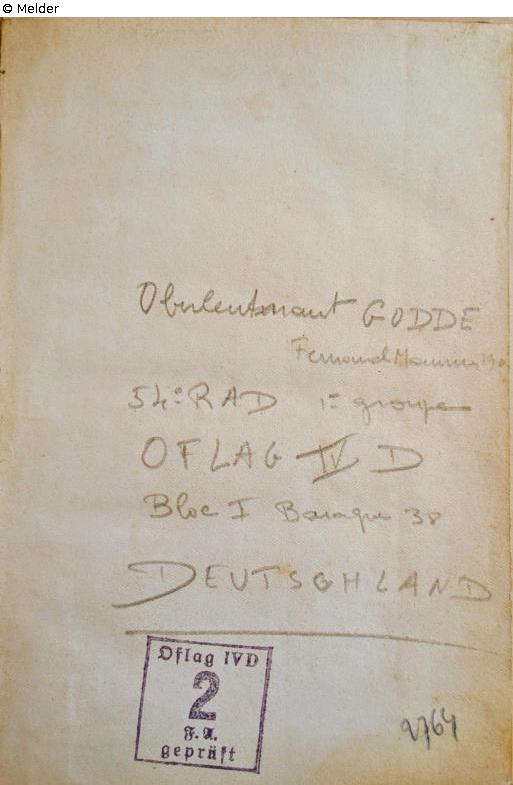 © Melder
Oberleutenant GODDE
Fernand
54e RAD 1er groupe
OFLAG IV D
Bloc I Baraque 38
DEUTSCHLAND
Oflag IVD
2
F.A.
geprüft
2764